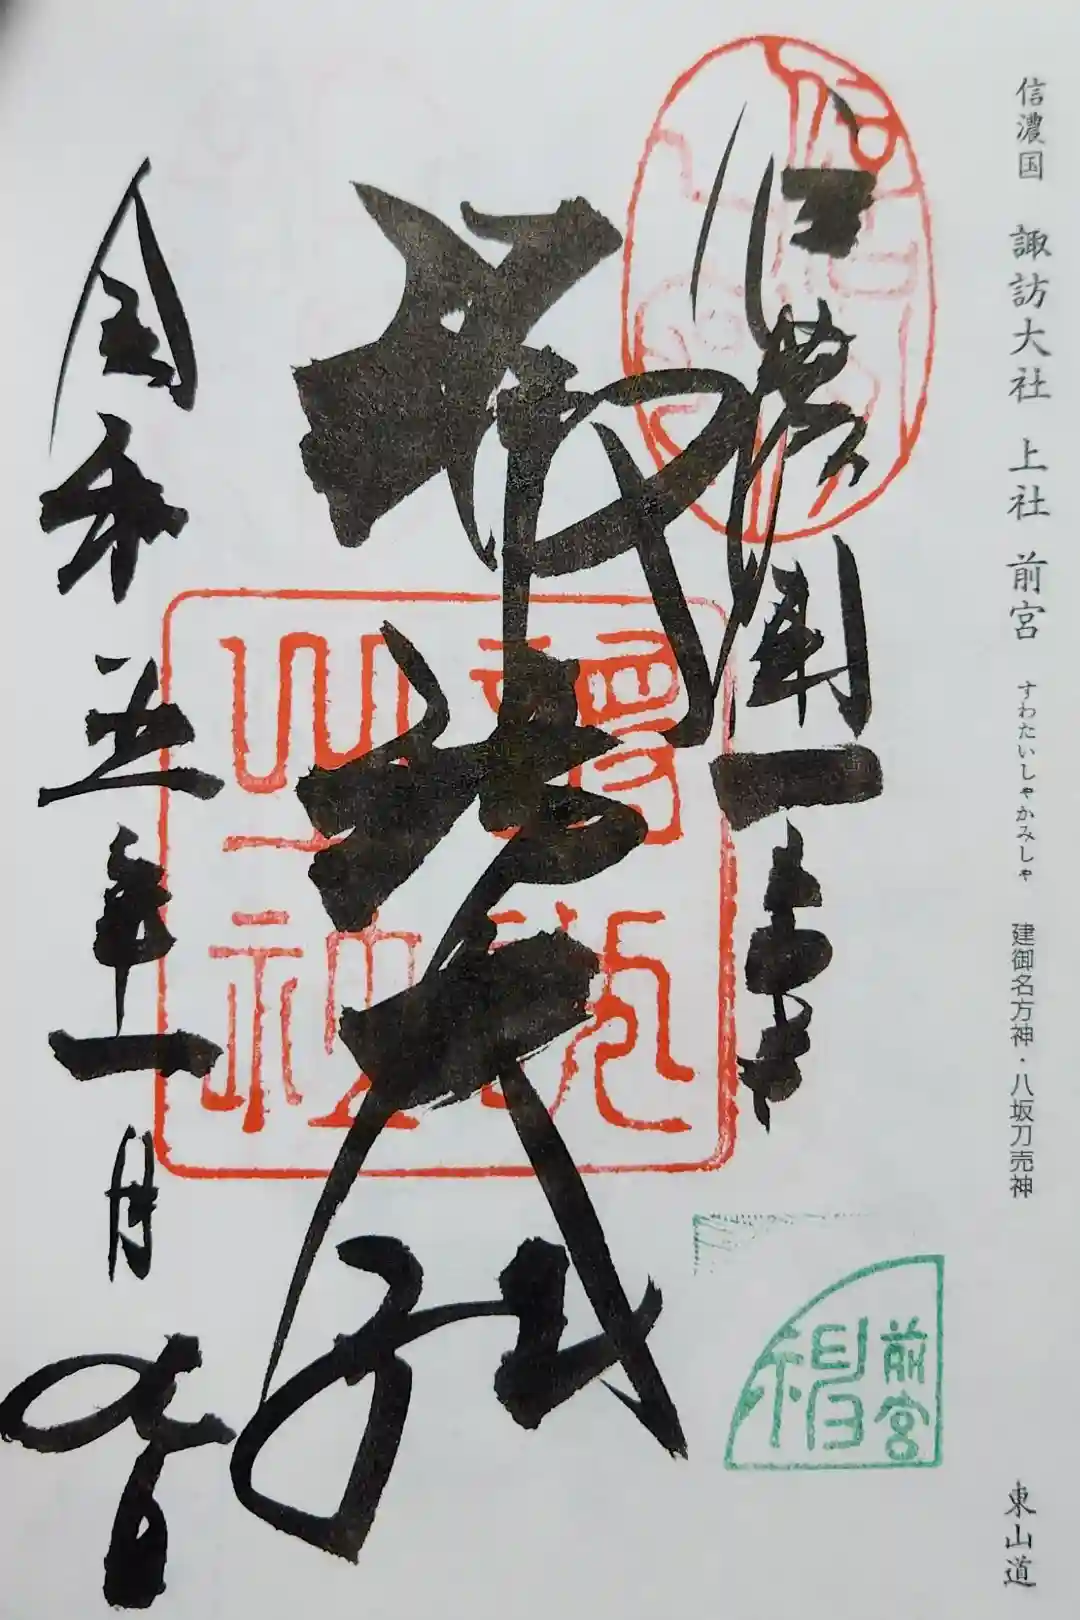 信濃国 諏訪大社 上社 前宮 すわたいしゃかみしゃ 建御名方神・八坂刀売神 東山道
信濃國一之宮
諏訪大社
令和五年一月
前宮